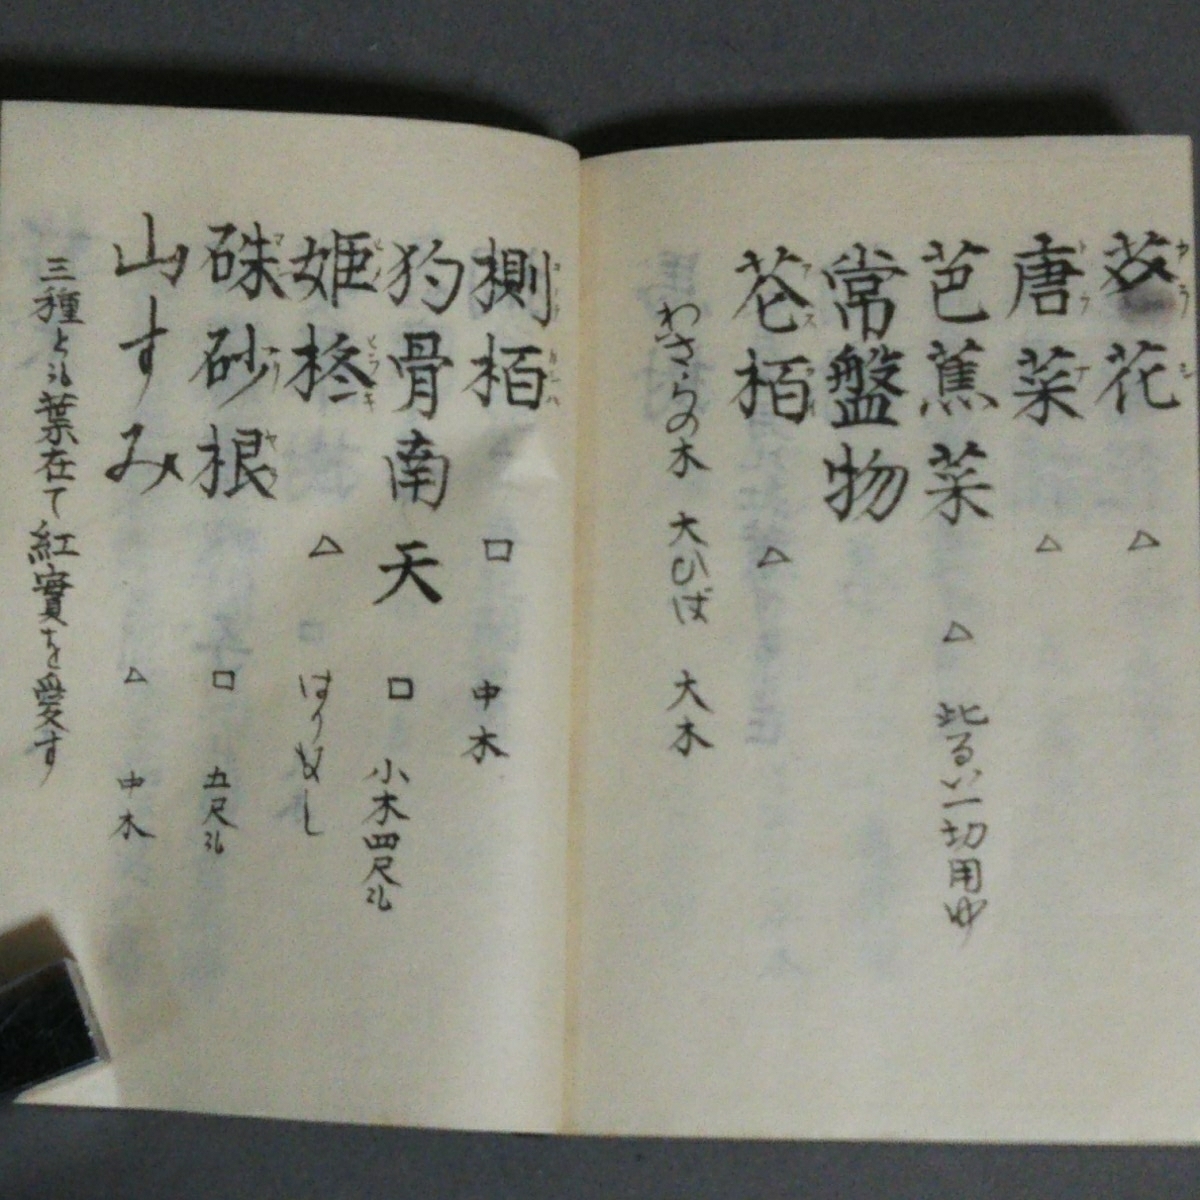 花 △
唐菜 △
芭蕉菜 △ 此るい一切用ゆ
常盤物
花栢 △
わさらの木 大ひば 大木
側栢 □ 中木
狗骨南天 □ 小木四尺
姫柊 △ はりなし
硃砂根 □ 五尺
山すみ △ 中木
三種とも葉在て紅實を愛す